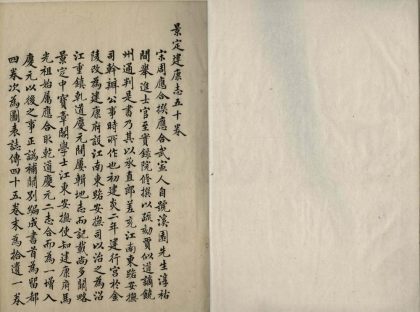 景定建康志五十卷
宋周應合撰應合武寧人自號溪園先生淳祐
間舉進士官至實錄院修撰以疏劾賈似道謫饒
州通判是書乃其以承直郎差充江南東路安撫
司幹辦公事時所作也初建炎二年建行宮於金
陵改為建康府設江南東路安撫司以治之為沿
江重鎮乾道慶元間屢輯地志而記載尚多闕略
景定中寶章閣學士江東安撫使知建康府馬
光祖始屬應合取乾道慶元二志合而為一增入
慶元以後之事正訛補闕別編成書首為留都
四卷次為圖表志傳四十五卷末為拾遺一卷